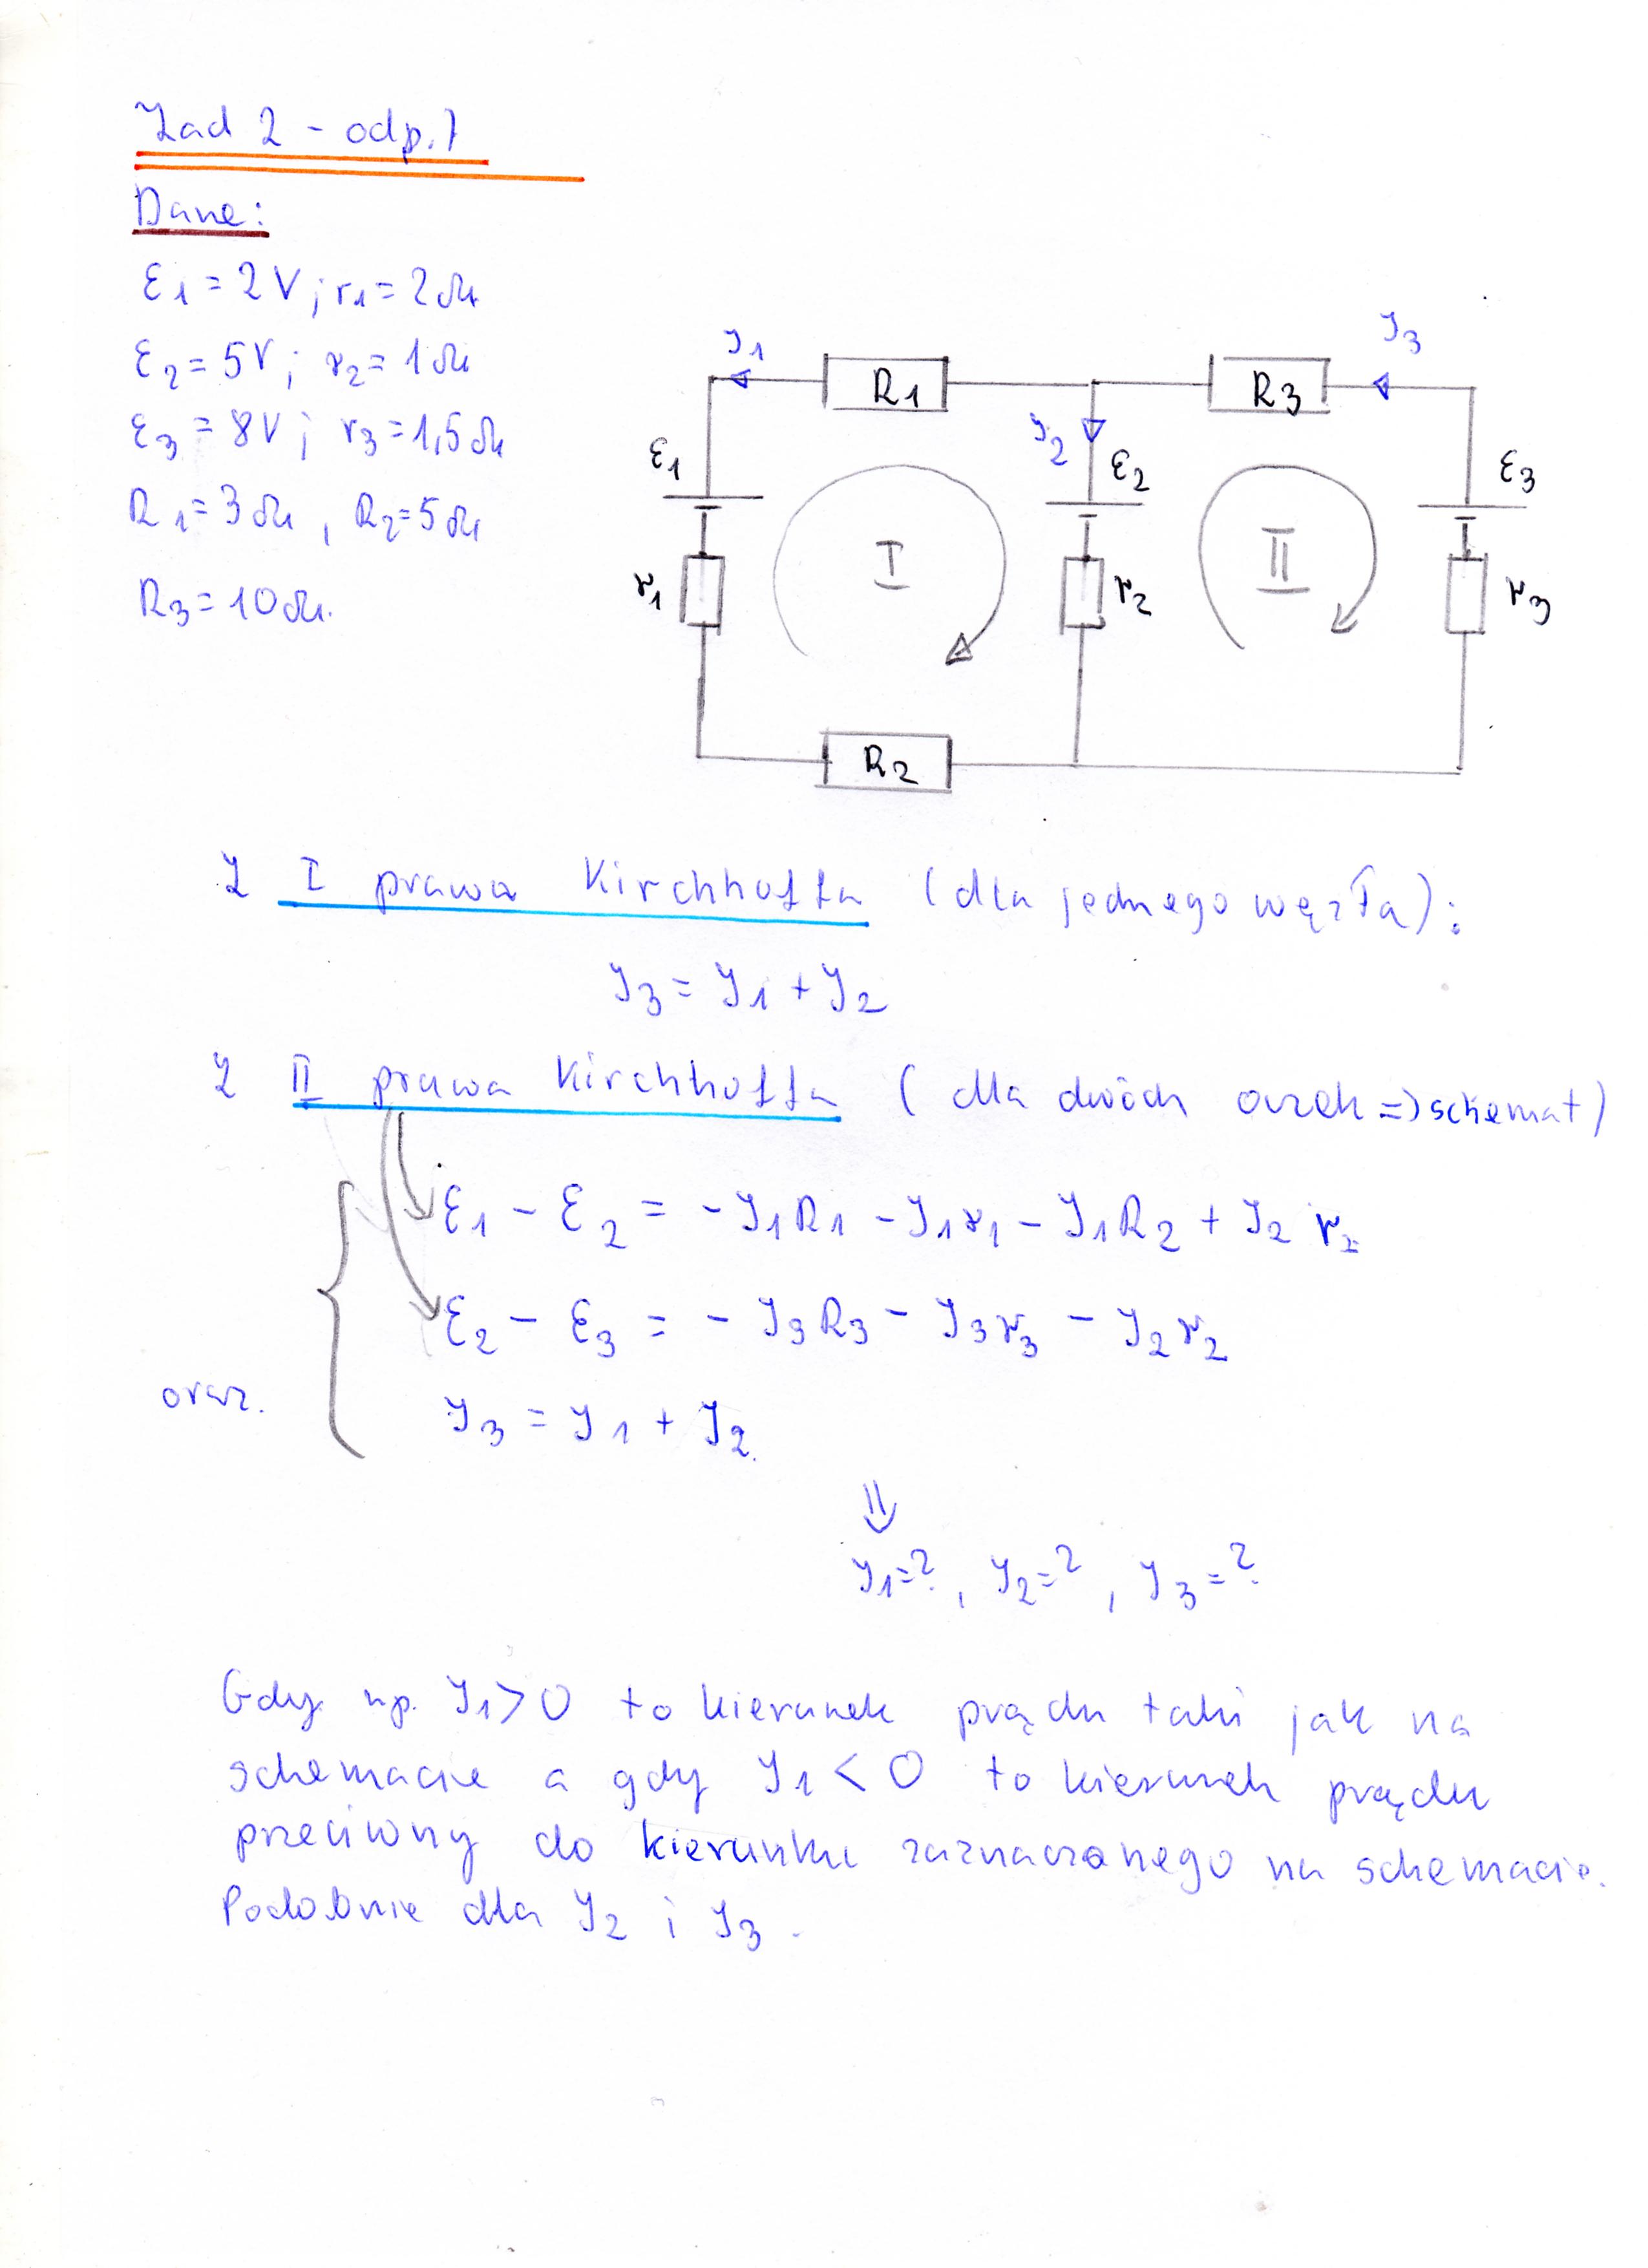 Zad 2 - odp.1
Dane:
ε1 = 2V; r1 = 2Ω
ε2 = 5V; r2 = 1Ω
ε3 = 8V; r3 = 1,5Ω
R1 = 3Ω, R2 = 5Ω
R3 = 10Ω.
I1 R1 R3 I3
I2
ε1 ε2 ε3
I II
r1 r2 r3
R2
Z I prawa Kirchhoffa (dla jednego węzła):
I3 = I1 + I2
Z II prawa Kirchhoffa (dla dwóch oczek => schemat)
ε1 - ε2 = - I1R1 - I1r1 - I1R2 + I2 r2
ε2 - ε3 = - I3R3 - I3r3 - I2r2
oraz. I3 = I1 + I2.
⇓
I1=?, I2=?, I3=?
Gdy np. I1>0 to kierunek prądu taki jak na
schemacie a gdy I1 < 0 to kierunek prądu
przeciwny do kierunku zaznaczonego na schemacie.
Podobnie dla I2 i I3.